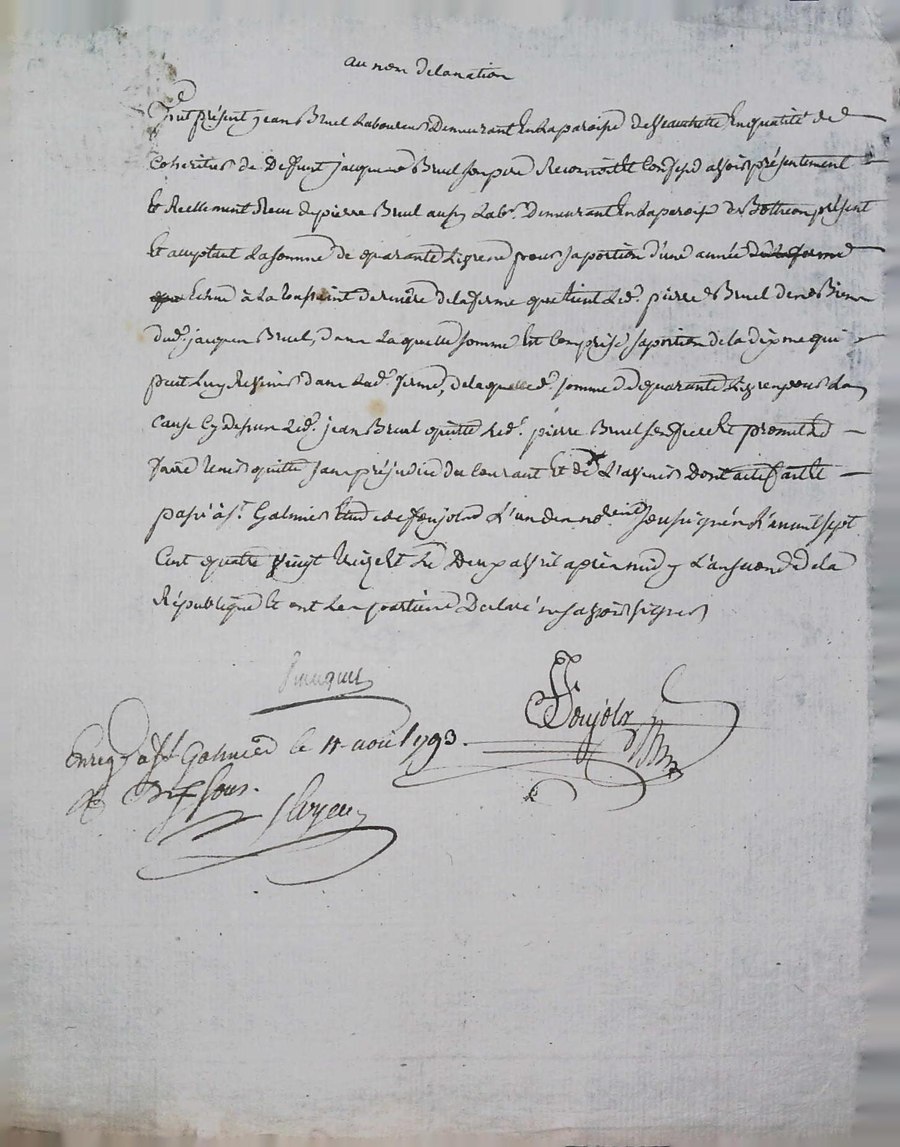 au nom de la nation
Fut présent jean Bruel Laboureur Demeurant En La paroisse de En qualité de
Coheritier de Deffunt jacques Bruel son pere Reconnoit Et Confesse avoir présentement
Et Reellement Receu de pierre Bruel aussy Lab.r Demeurant En La paroisse de présent
Et acceptant La somme de quarante Livres pour sa portion d'une année de la ferme
Echue à La toussaint derniere de la ferme que tient Led. pierre Bruel des Biens
dud. jacques Bruel, dans Laquelle somme Est Comprise sa portion de la dixme qui
peut Luy Revenir dans Lad. ferme, de laquelle d. somme de quarante Livres pour La
Cause Cy dessus Led. jean Bruel quitte Led. pierre Bruel son frere Et promet Le
faire tenir quitte sans préjudice du Courant Et de L'avenir Dont acte fait Et
passé à S.t Galmier Etude de Poujols L'un des no.res soussignés L'an mil sept
Cent quatre vingt treize Et Le Deux avril après midy L'an second de la
République Et ont Les parties Declaré ne savoir signer
Poujols
Enreg. à St Galmier le 11 aout 1793.
R. Dix sous.